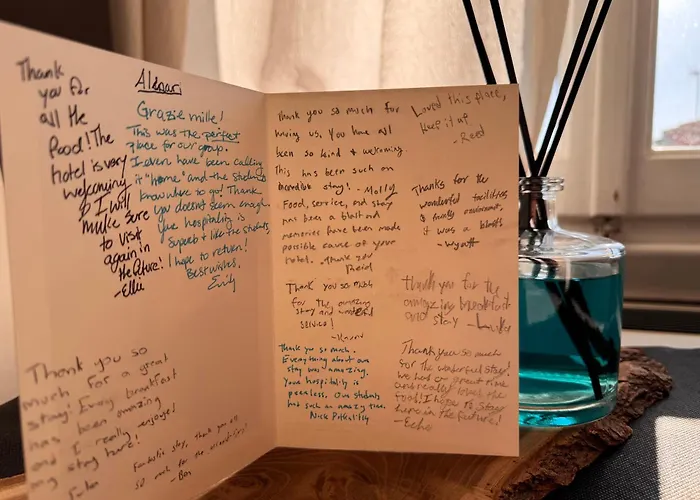 Thank
you for
all the
food! The
hotel is very
welcoming
& I will
make sure
to visit
again in
the future!
-Ellie
Grazie mille!
This was the perfect
place for our group.
I even have been calling
it "home" and the students
know where to go! Thank
you doesn't seem enough
your hospitality is
superb & like the students,
I hope to return!
Best wishes,
Emily
Thank you so
much for a great
stay! Every breakfast
has been amazing
and I really enjoyed
my stay here!
Fantastic stay, thank you all
so much for the
-Ben
Thank you so much for
having us. You have all
been so kind & welcoming.
This has been such an
incredible stay! - Molly
Food, service, and stay
has been a blast and
memories have been made
possible cause of your
hotel. Thank you
Reid
Thank you so much
for the amazing
stay and
service!
Thank you so much.
Everything about our
stay was amazing.
Your hospitality is
peerless. Our students
had such an amazing time.
Nick
Loved this place,
keep it up
-Reed
Thanks for the
wonderful facilities
& family environment,
it was a
-Wyatt
Thank you for the
amazing breakfast
and stay -
Thank you so much
for the wonderful stay!
we had an great time
and really loved the
food! I hope to stay
here in the future!
-Echo